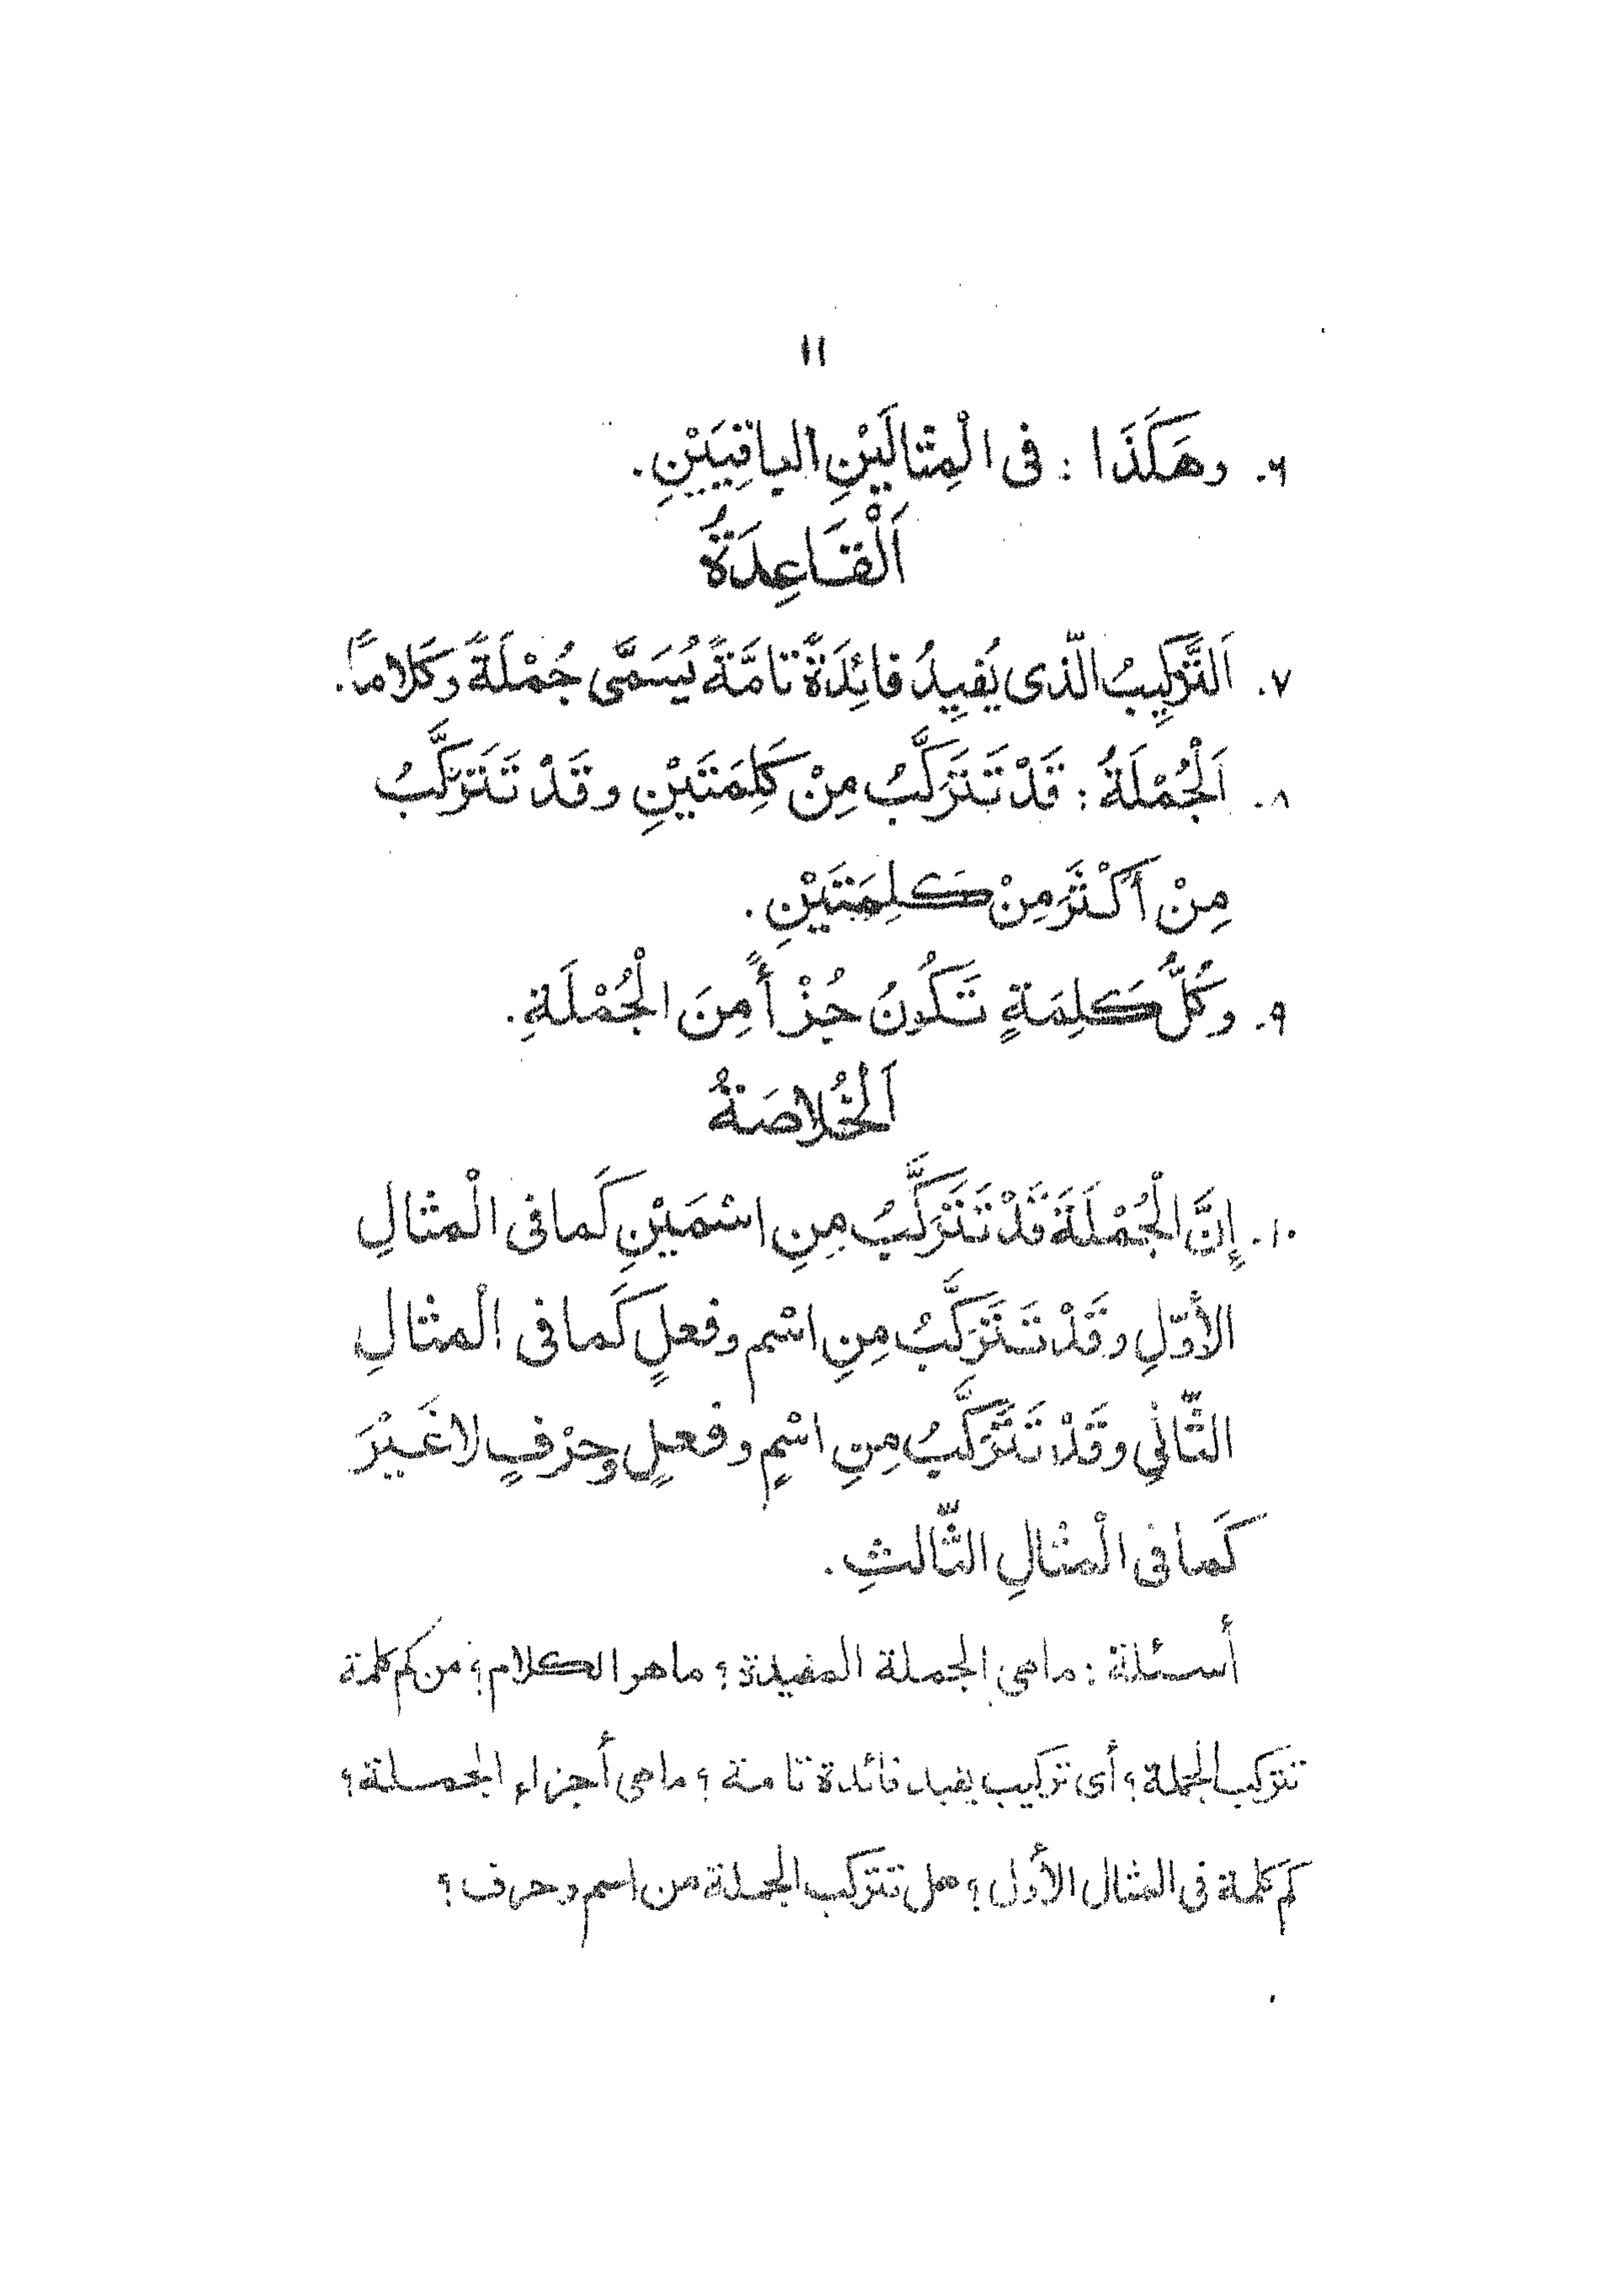 ١١
٦. وهَكَذَا : فى الْمِثَالَيْنِ الباقِيَيْنِ.
اَلْقَاعِدَةُ
٧. اَلتَّرْكِيبُ الّذى يُفِيدُ فائِدَةً تامَّةً يُسَمَّى جُمْلَةً وكَلامًا.
٨. اَلْجُمْلَةُ : قَدْ تَتَرَكَّبُ مِنْ كَلِمَتَيْنِ وقَدْ تَتَرَكَّبُ
مِنْ أَكْثَرَ مِنْ كَلِمَتَيْنِ.
٩. وكُلُّ كَلِمَةٍ تَكُونُ جُزْأً مِنَ الْجُمْلَةِ.
اَلْخُلاصَةُ
١٠. إِنَّ الْجُمْلَةَ قَدْ تَتَرَكَّبُ مِنِ اسْمَيْنِ كَما فى الْمثالِ
الأوّلِ وقَدْ تَتَرَكَّبُ مِنِ اسْمٍ وفعلٍ كَما فى الْمثالِ
الثّانِي وقَدْ تَتَرَكَّبُ مِنِ اسْمٍ وفعلٍ وحرْفٍ لا غَيْرَ
كَما فى الْمثالِ الثّالثِ.
أسئلة : ماهى الجملة المفيدة ؟ ماهو الكلام ؟ من كم كلمة
تتركب الجملة ؟ أى تركيب يفيد فائدة تامة ؟ ماهى أجزاء الجملة ؟
كم كلمة فى المثال الأول ؟ هل تتركب الجملة من اسم وحرف ؟